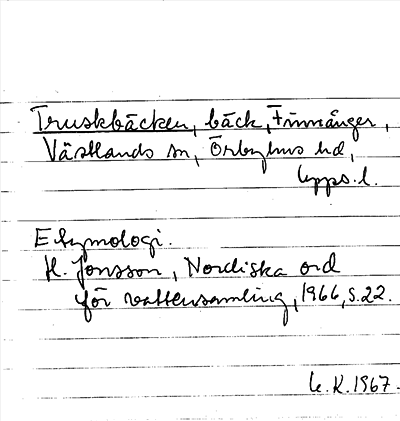 Truskbäcken, bäck, Finnånger,
Västlands sn, Örbyhus hd,
Upps. l.
Etymologi.
H. Jonsson, Nordiska ord
för vattensamling, 1966, s. 22.
U. K. 1967.